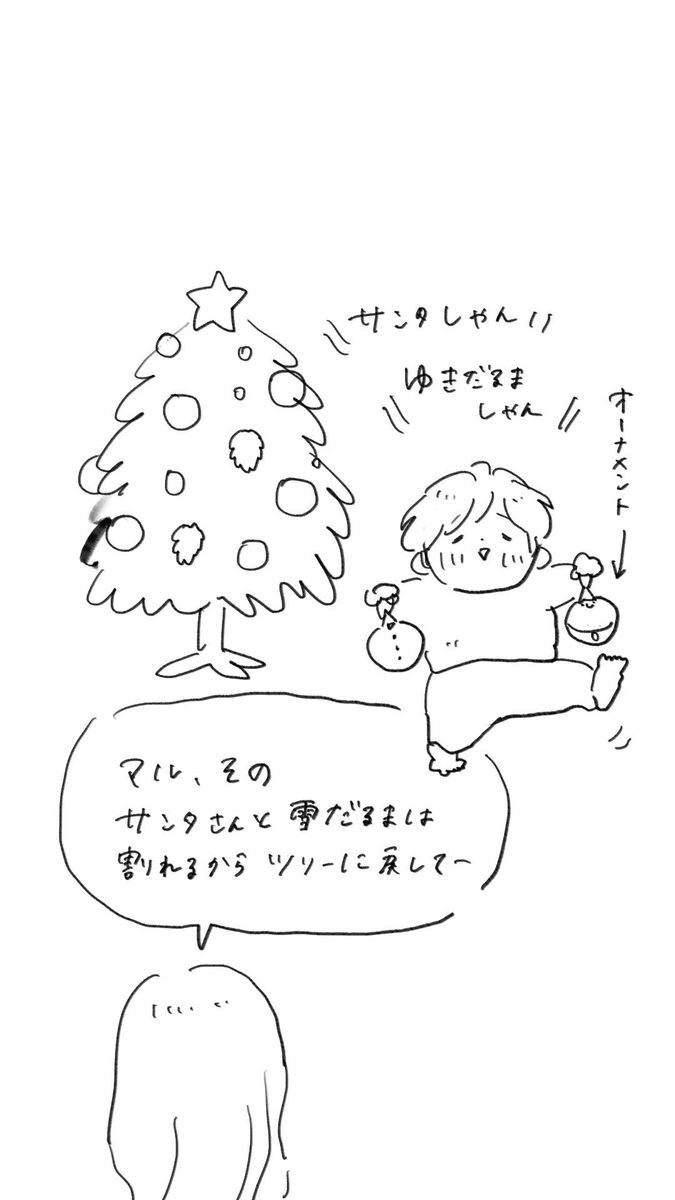 サンタしゃん
ゆきだるま
しゃん
オーナメント
マル、その
サンタさんと雪だるまは
割れるからツリーに戻してー